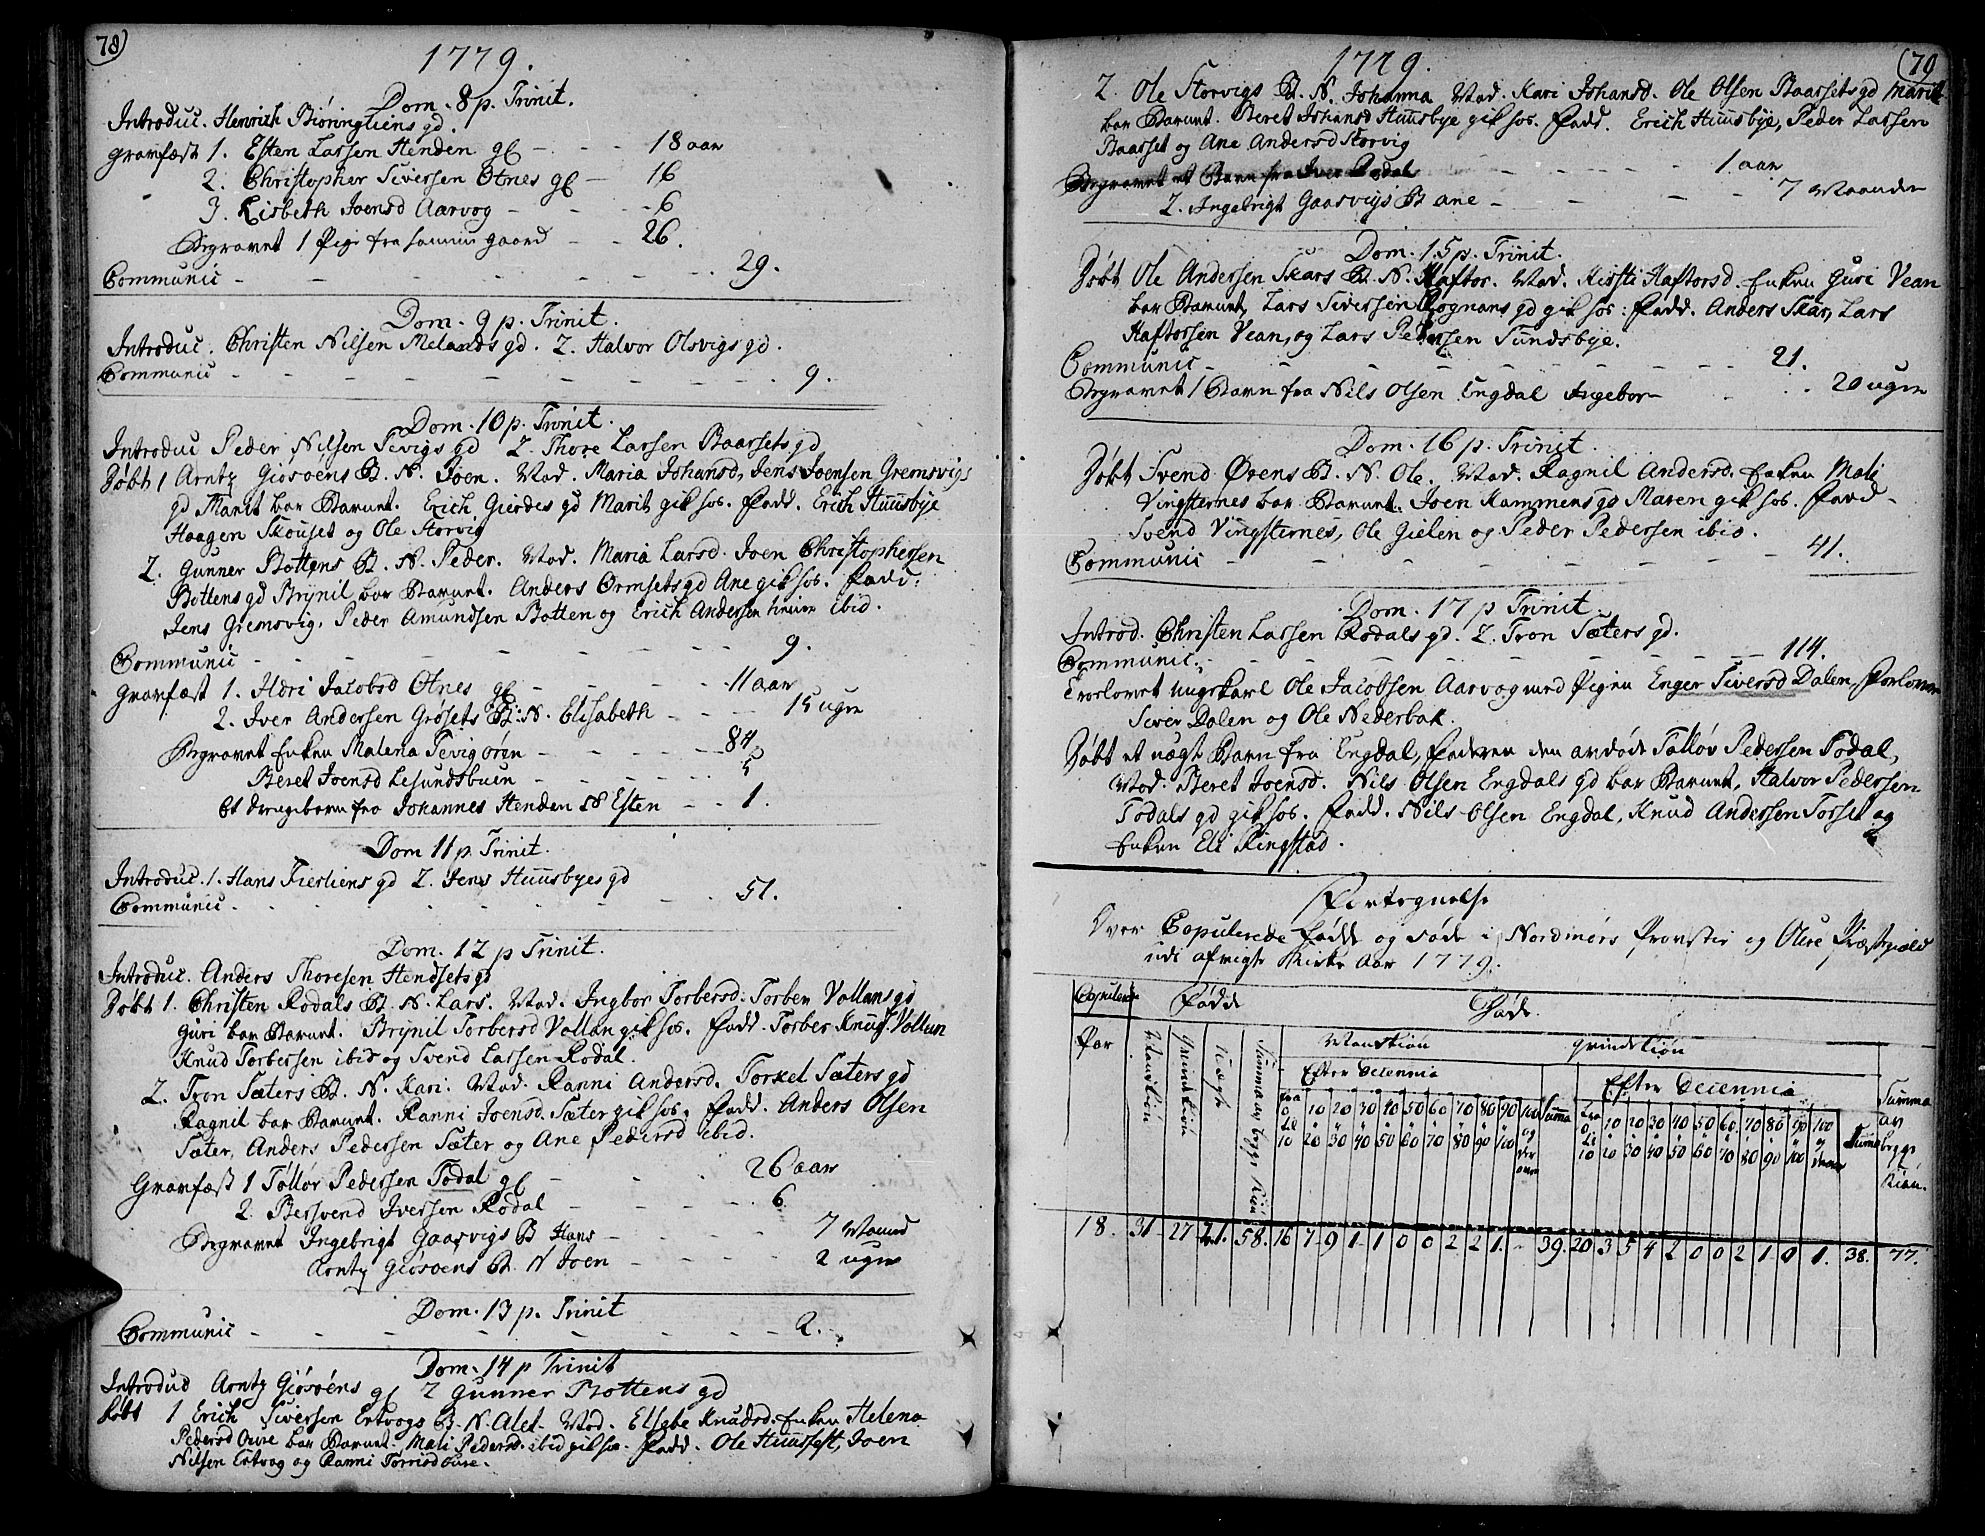 78)
1779.
Dom. 8 p. Trinit.
Introduc. Henrich Biøringliens gd.
Gravfæst 1. Esten Larsen Henden gl - - - 18 aar
2. Christopher Siversen Otnes gl - 16
3. Lisbeth Joensd Aarvog - - - 6
Begravet 1 Pige fra samme gaard - - 26.
Communic - - - - - - - - 29.
Dom. 9 p. Trinit.
Introduc. Christen Nilsen Melands gd. 2. Halvor Olsvigs gd.
Communic - - - - - - - - - 9.
Dom. 10 p. Trinit.
Introduc Peder Nilsen Tevigs gd 2. Thore Larsen Baarsets gd
Døbt 1 Arntz Giøsøens B. N. Joen. Mod. Maria Johansd, Jens Joensen Gremsvigs
gd Marit bar Barnet. Erich Gierdes gd Marit gik hos. Fadd. Erich Huusbye
Haagen Skouset og Ole Storvig
2. Gunner Bottens B. N. Peder. Mod. Maria Larsd. Joen Christophersen
Bottens gd Brynil bar Barnet. Anders Ormsets gd Ane gik hos. Fadd.
Jens Gremsvig, Peder Amundsen Botten og Erich Andersen ibid.
Communic - - - - - - - - 9.
Gravfæst 1. Jacobsd Otnes gl - - - - 11 aar
2. Iver Andersen Grøsets B. N. Elisabeth - - - 15 uger
Begravet Enken Malena Tevigøren - - - - 84
Beret Joensd Lesundsbuen - - - - - 5
Et Drengebarn fra Johannes Henden N Esten - - 1.
Dom 11 p. Trinit.
Introduc. 1. Hans Fierliens gd 2. Jens Huusbyes gd
Communic - - - - - - - 51.
Dom. 12 p Trinit.
Introduc. Anders Thoresen Hendsets gd
Døbt 1. Christen Rodals B. N. Lars. Mod. Ingbor Torbersd. Torben Vollans gd
Guri bar Barnet. Brynil Torbersd Vollan gik hos. Fadd. Torber Knuds. Vollan
Knud Torbersen ibid og Svend Larsen Rodal.
2. Tron Sæters B. N. Kari. Mod. Ranni Andersd. Torkel Sæters gd
Ragnil bar Barnet. Ranni Joensd Sæter gik hos. Fadd. Anders Olsen
Sæter, Anders Pedersen Sæter og Ane Pedersd ibid.
Gravfæst 1 Tølløv Pedersen Todal gl - - - 26 aar
2. Bersvend Iversen Rodal - - - - 6
Begravet Ingebrigt Gaasvigs B Hans - - - 7 Maand
Arntz Giøsøens B. N Joen - - - 2 uger
Dom. 13 p. Trinit
Communic - - - - - - - - 2.
Dom. 14 p Trinit
Introdud Arntz Giøsøens gl 2 Gunner Bottens gd
Døbt 1 Erich Siversen Ertvogs B. N. Alet. Mod. Elsebe Knudsd. Enken Helena
Pedersd Oure bar Barnet. Mali Pedersd. ibid gik hos. Fadd. Ole Huusfest, Joen
Nilsen Ertvog og Ranni Torrisd Oure.
1779.
(79
2. Ole Storvigs B. N. Johanna Mod. Kari Johansd. Ole Olsen Baarsets gd Marit
bar Barnet. Beret Johansd Huusbye gik hos. Fadd. Erich Huusbye, Peder Larsen
Baarset og Ane Andersd Storvig
Begravet et Barn fra Iver Rodal - - - - 1 aar
2. Ingebrigt Gaasvigs B ane - - - - 7 Maander
Dom. 15 p. Trinit.
Døbt Ole Andersen Skars B. N. Haftor. Mod. Kirsti Haftorsd. Enken Guri Vean
bar Barnet, Lars Siversen Rognans gd gik hos: Fadd. Anders Skar, Lars
Haftorsen Vean, og Lars Pedersen Sundsbye.
Communic - - - - - - - - - 21.
Begravet 1 Barn fra Nils Olsen Engdal Ingebor - - - 20 uger
Dom. 16 p. Trinit.
Døbt Svend Ørens B. N. Ole. Mod. Ragnil Andersd. Enken Mali
Vingsternes bar Barnet. Joen Kammens gd Maren gik hos. Fadd.
Svend Vingsternes, Ole Gielen og Peder Pedersen ibid.
Communic - - - - - - - - 41.
Dom. 17 p Trinit.
Introd. Christen Larsen Rodals gd. 2. Tron Sæters gd.
Communic. - - - - - - - - 114.
Trorlovet ungkarl Ole Jacobsen Aarvog med Pigen Enger Siversd Dalen, Forlover
Siver Dalen og Ole Nederbak.
Døbt et uægt Barn fra Engdal, Faderen den avdøde Tølløv Pedersen Todal,
Mod. Beret Joensd. Nils Olsen Engdals gd bar Barnet, Halvor Pedersen
Todals gd gik hos. Fadd. Nils Olsen Engdal, Knud Andersen Torset og
Enken Eli Ringstad.
Fortegnelse
Over Copulerede Fødde og Døde i Nordmørs Provstie og Oure Præstegield
udi afvigte Kirke Aar 1779.
Copulerede Fødde Døde
Par Mandkiøn Qvindekiøn Uægte Summa av begge Kiøn Mandkiøn Qvindekiøn Summa av begge Kiøn.
Efter Decennia Efter Decennia
fra 0 til 10 10 20 20 30 30 40 40 50 50 60 60 70 70 80 80 90 90 100 100 og derover Summa fra 0 til 10 10 20 20 30 30 40 40 50 50 60 60 70 70 80 80 90 90 100 100 Summa
18. 31 27 1. 58. 16 7 9 1 1 0 0 2 2 1. - 39. 20 3 5 4 2 0 0 2 1 0 1. 38. 77.